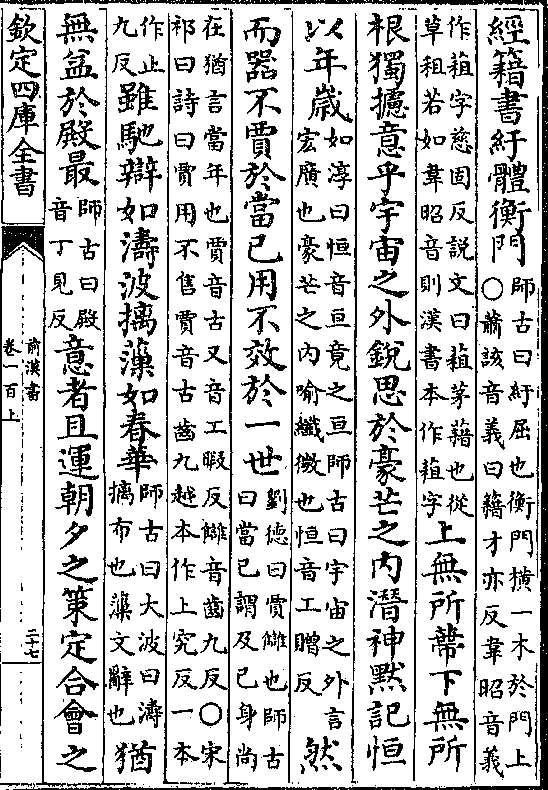 經籍書紆體衡門師古曰紆屈也衡門橫一木於門上
○蕭該音義曰籍才亦反韋昭音義
作葅字慈固反説文曰葅茅藉也從
草租若如韋昭音則漢書本作葅字上無所蔕下無所
根獨攄意乎宇宙之外銳思於豪芒之内潛神默記恒
以年歲如淳曰恒音亘竟之亘師古曰宇宙之外言
宏廣也豪芒之内喻纖微也恒音工贈反然
而器不賈於當已用不效於一世劉德曰賈讎也師古
曰當已謂及已身尚
在猶言當年也賈音古又音工暇反讎音齒九反○宋
祁曰詩曰賈用不售賈音古齒九越本作上究反一本
作止
九反雖馳辯如濤波摛藻如春華師古曰大波曰濤
摛布也藻文辭也猶
無益於殿最師古曰殿
音丁見反意者且運朝夕之策定合會之
欽定四庫全書
前漢書
卷一百上
二十七